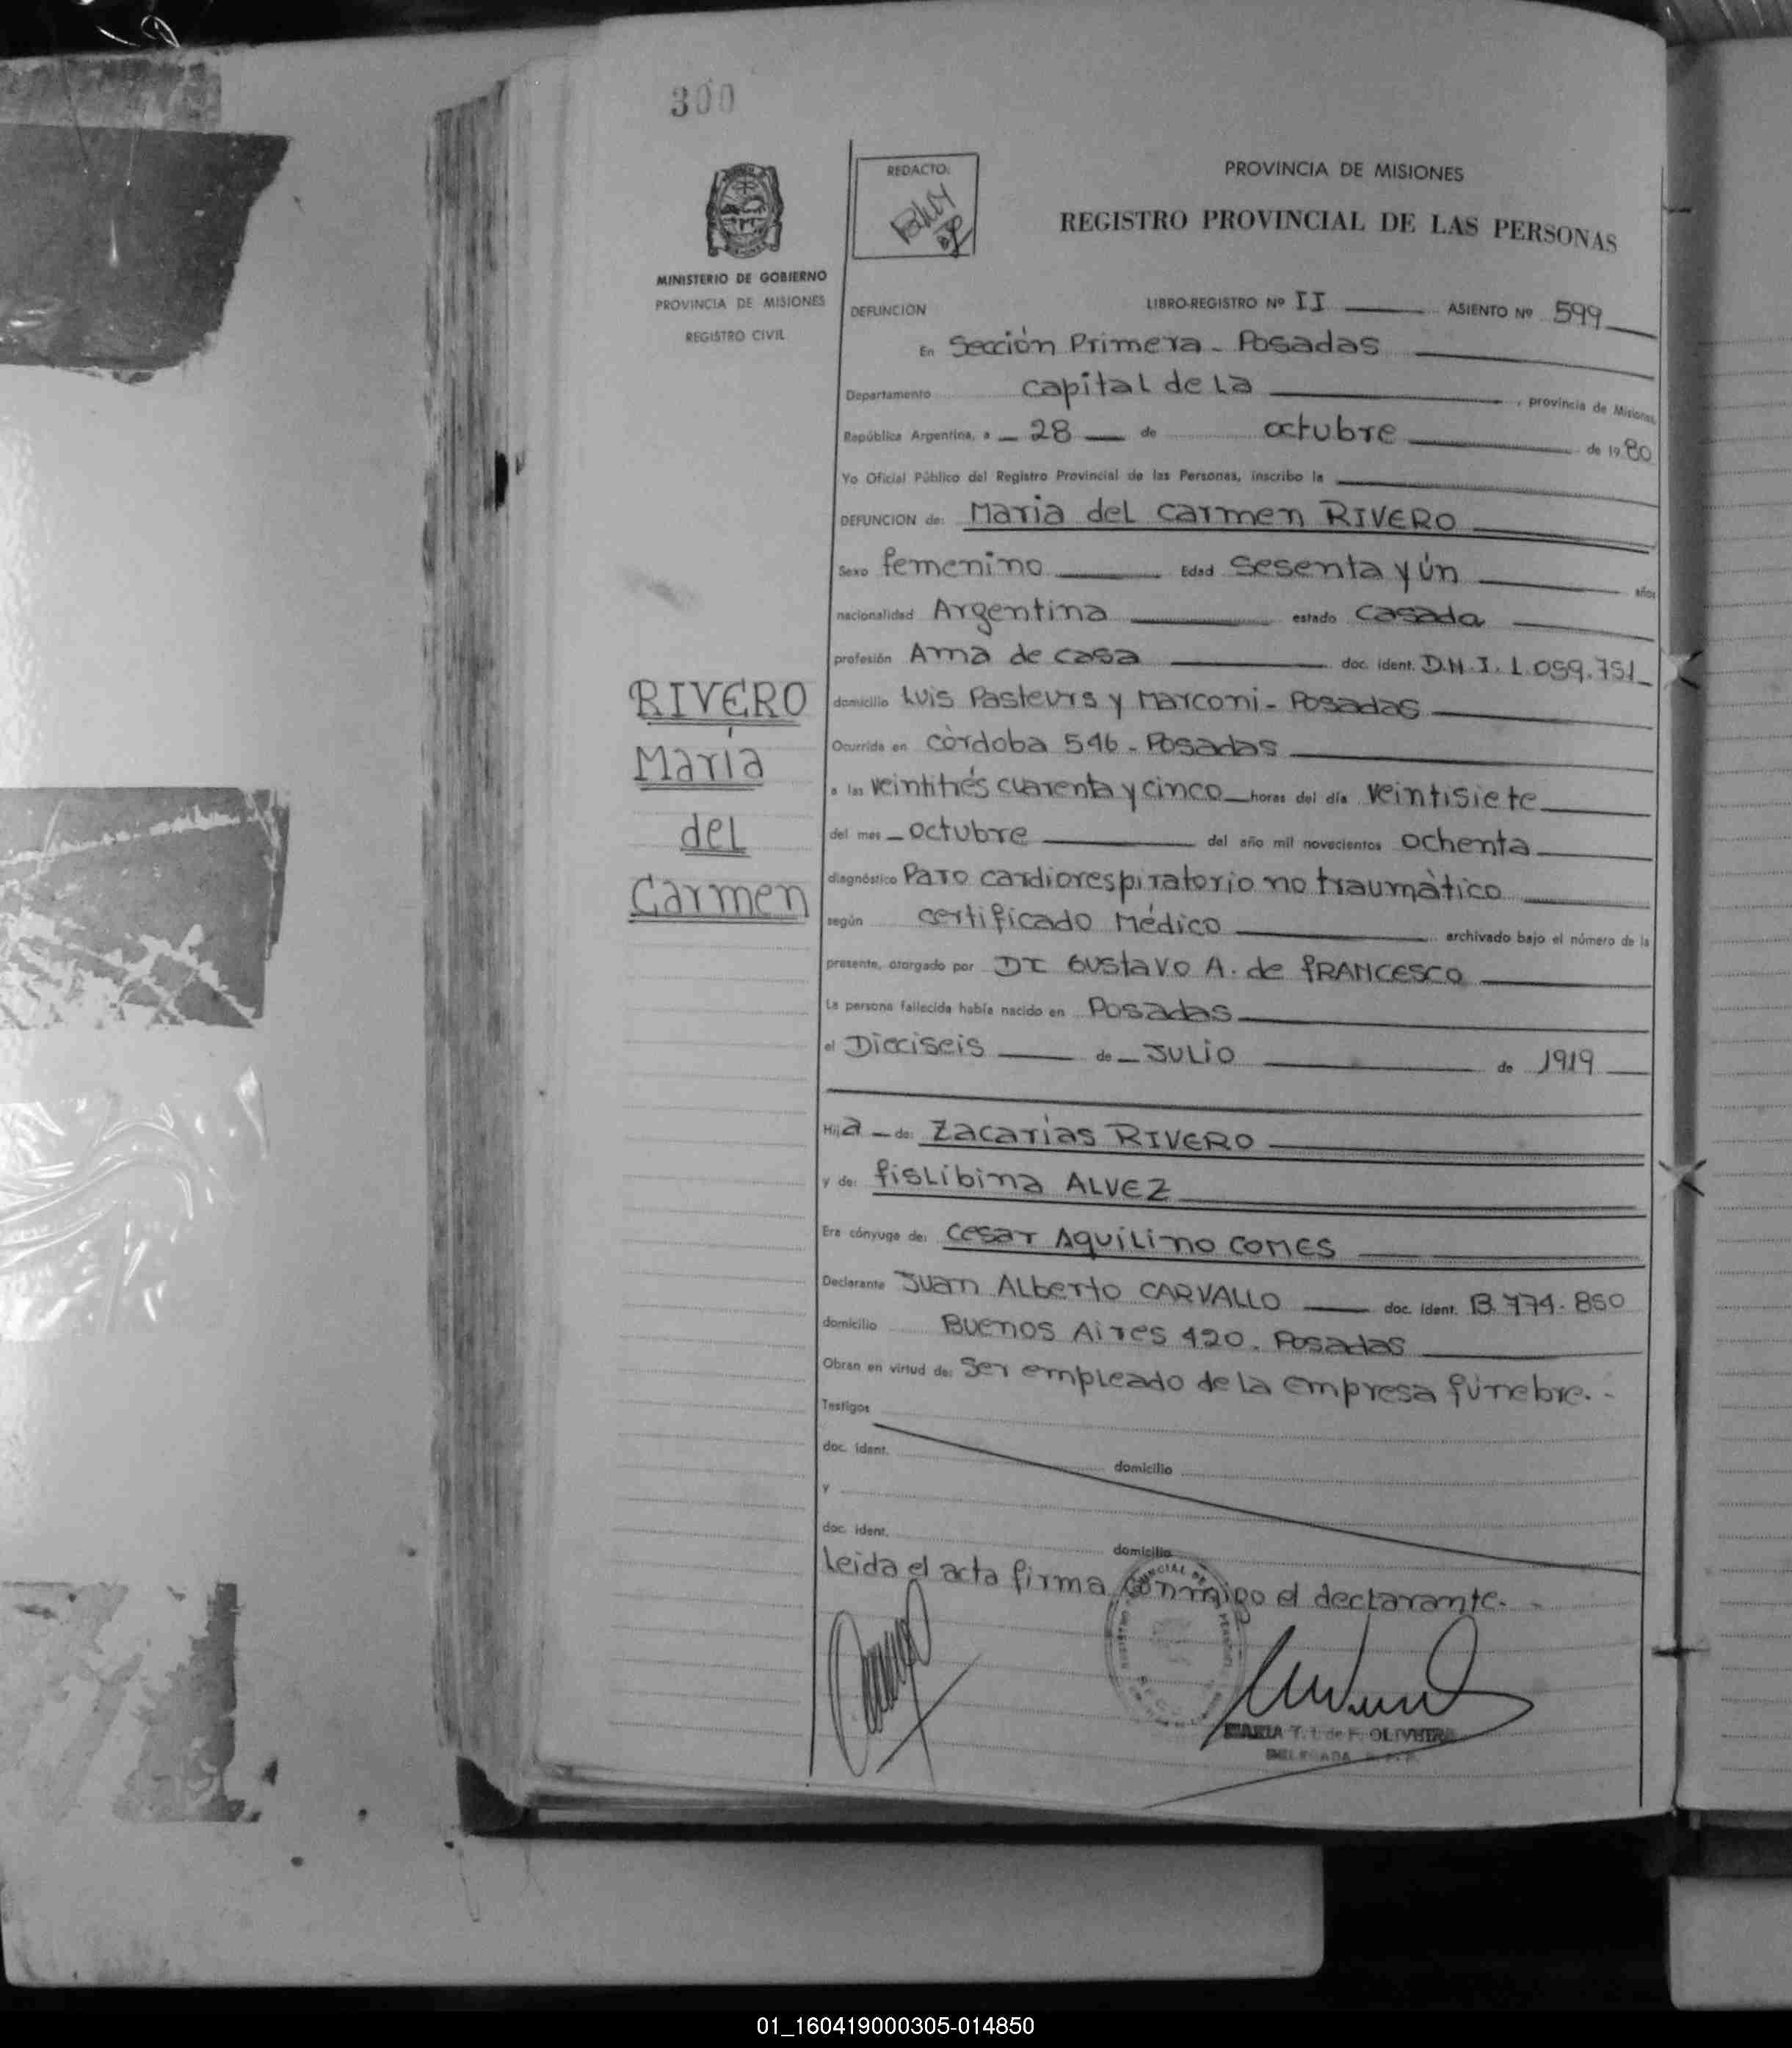 300
REDACTO:
PROVINCIA DE MISIONES
REGISTRO PROVINCIAL DE LAS PERSONAS
MINISTERIO DE GOBIERNO
PROVINCIA DE MISIONES
REGISTRO CIVIL
DEFUNCION LIBRO-REGISTRO Nº II ASIENTO Nº 599
En Sección Primera - Posadas
Departamento capital de La , provincia de Misiones
República Argentina, a 28 de octubre de 1980
Yo Oficial Público del Registro Provincial de las Personas, inscribo la
DEFUNCION de: Maria del carmen RIVERO
Sexo femenino Edad sesenta y ún años
nacionalidad Argentina estado casada
profesión Ama de casa doc. ident. D.N.I. 1.059.751
domicilio Luis Pasteurs y Marconi - Posadas
Ocurrida en còrdoba 546 - Posadas
a las veintitrés cuarenta y cinco horas del día veintisiete
del mes octubre del año mil novecientos ochenta
diagnóstico Paro cardiorespiratorio no traumàtico
según certificado Médico archivado bajo el número de la
presente, otorgado por Dr Gustavo A. de fRANCESCO
La persona fallecida había nacido en Posadas
el Dieciseis de JULIO de 1919
Hija de: Zacarias RIVERO
y de: fislibina ALVEZ
Era cónyuge de: cesar Aquilino COMES
Declarante Juan Alberto CARVALLO doc. ident. B. 774. 850
domicilio Buenos Aires 420. Posadas
Obran en virtud de: Ser empleado de la empresa fúnebre. -
Testigos
doc. ident. domicilio
y
doc. ident. domicilio
Leida el acta firma conmigo el declarante. -
RIVERO
María
del
Carmen
MARIA T. I. de F. OLIVEIRA
DELEGADA
01_160419000305-014850